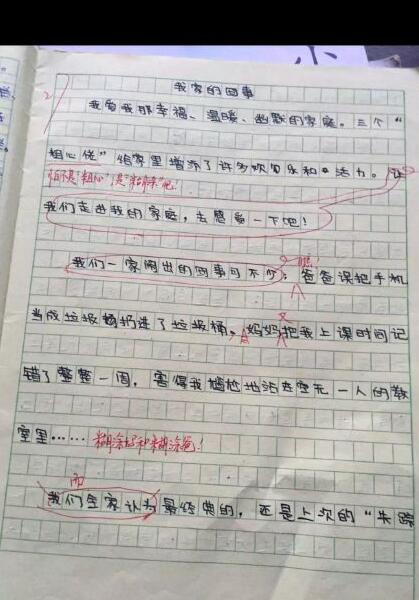 我家的囧事
我有我那幸福、温暖、幽默的家庭。三个“
粗心佬”给家里增添了许多欢乐和活力。让
怕不是“粗心”是“糊涂”吧!
我们走进我的家庭,去感受一下吧!
我们一家闹出的囧事可不少:爸爸误把手机
当成垃圾扔进了垃圾桶,妈妈把我上课时间记
又
错了整整一周,害得我尴尬地站在空无一人的教
室里……
糊涂蛋和糊涂爸!
而
我们全家认为最经典的,还是上次的“失踪